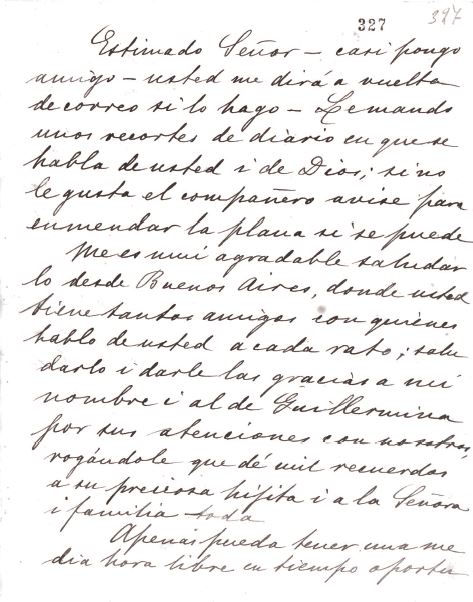 327 327
Estimado Señor – casi pongo
amigo – usted me dirá a vuelta
de correo si lo hago – Le mando
unos recortes de diario en que se
habla de usted i de Dios; si no
le gusta el compañero avise para
enmendar la plana si se puede
Me es mui agradable saludar
lo desde Buenos Aires, donde usted
tiene tantos amigos con quienes
hablo de usted a cada rato; salu
darlo i darle las gracias a mi
nombre i al de Guillermina
por sus atenciones con nosotros,
rogándole que dé mil recuerdos
a su preciosa hijita i a la Señora
i familia toda
Apenas pueda tener una me
dia hora libre en tiempo oportu